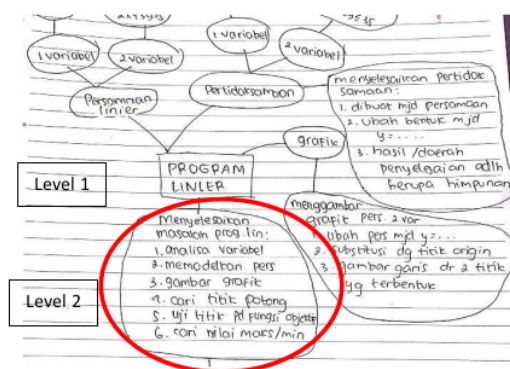 1 variabel
2 variabel
1 variabel
2 variabel
Persamaan
linier
Pertidaksamaan
menyelesaikan pertidak
samaan:
1. dibuat mjd persamaan
2. Ubah bentuk mjd
y=....
3. hasil/daerah
penyelesaian adlh
berupa himpunan
grafik
PROGRAM
LINIER
Level 1
menggambar
grafik pers. 2 var
1. Ubah pers mjd y=...
2. substitusi dg titik origin
3. gambar garis dr 2 titik
yg terbentuk
Menyelesaikan
masalah prog. lin:
1. analisa variabel
2. memodelkan pers
3. gambar grafik
4. cari titik potong
5. Uji titik pd fungsi objektif
6. cari nilai maks/min
Level 2